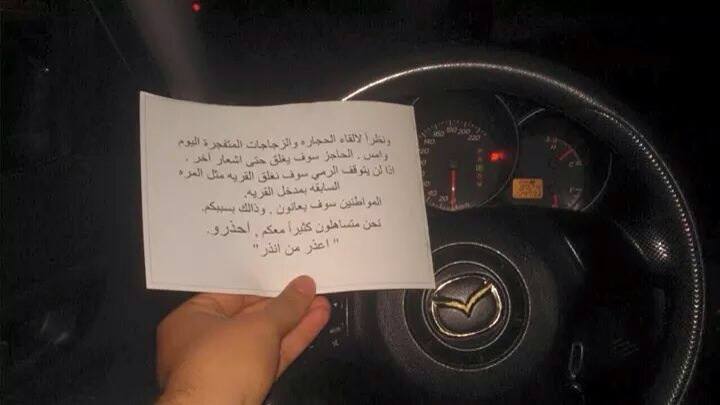 ونظراً لالقاء الحجاره والزجاجات المتفجرة اليوم
وامس . الحاجز سوف يغلق حتى اشعار آخر .
اذا لن يتوقف الرمي سوف نغلق القريه مثل المره
السابقه بمدخل القريه.
المواطنين سوف يعانون , وذالك بسببكم.
نحن متساهلون كثيراً معكم , أحذرو.
" اعذر من انذر"